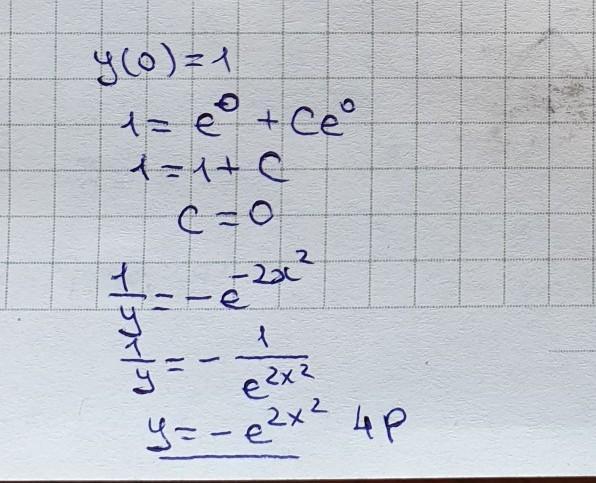 y(0)=1
1 = e⁰ + Ce⁰
1 = 1 + C
C = 0
1/y = -e^(-2x²)
1/y = - 1/e^(2x²)
y = -e^(2x²) 4p